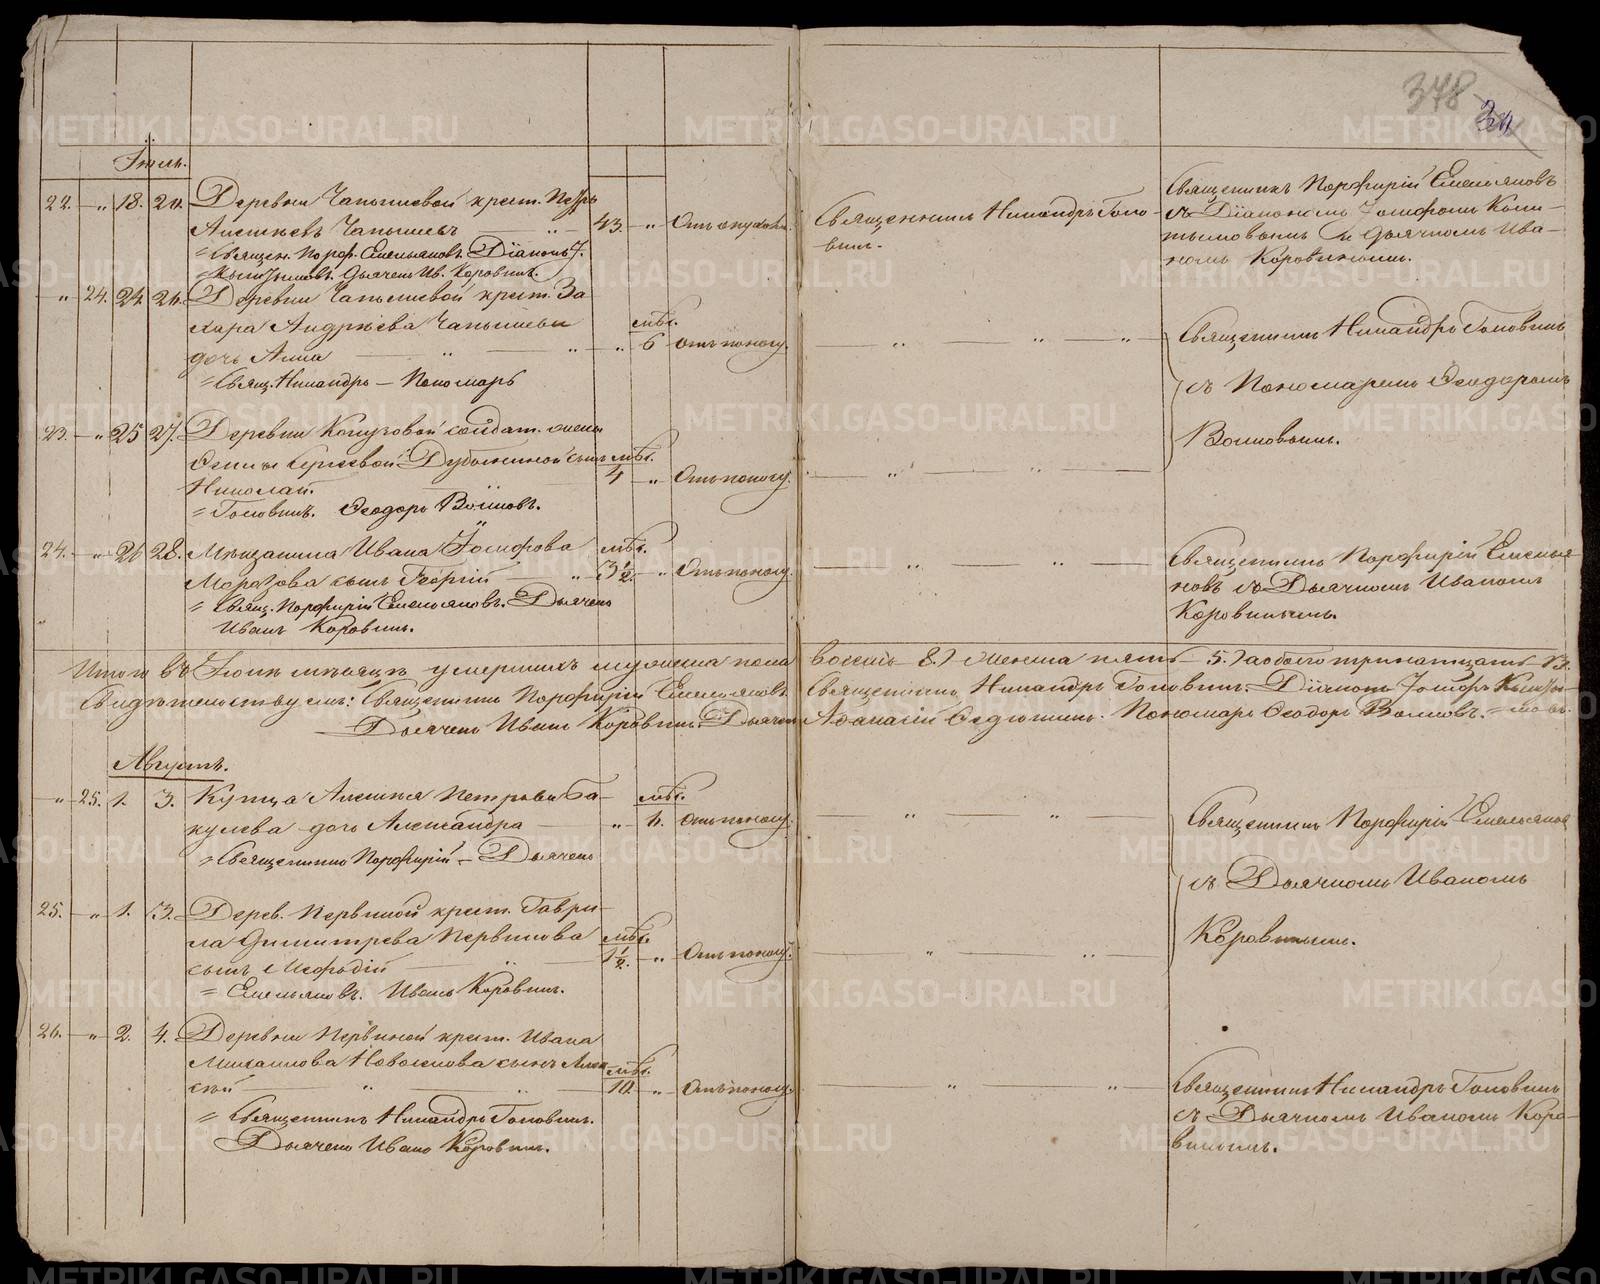 378
Іюль.
22. — „ 18. 20. Деревни Чапышевой крест. Петръ
Алексѣевъ Чапышевъ — „ — 43. — „ Отъ опухоли.
= Священ. Порф. Емельяновъ. Діаконъ І.
Дьячекъ Ив. Коровинъ.
Священникъ Никандръ Голо-
винъ.
Священникъ Порфирій Емельяновъ
съ Діакономъ Іосифомъ
и Дьячкомъ Ива-
номъ Коровинымъ.
„ 24. 24. 26. Деревни Чапышевой крест. За
хара Андрѣева Чапышева мѣс.
дочь Анна — „ — „ — „ 6 Отъ поносу.
= Свящ. Никандръ — Пономарь
Священникъ Никандръ Головинъ
съ Пономаремъ Ѳеодоромъ
Воиновымъ.
23. — „ 25 27. Деревни солдат. жены
сынъ мѣс.
Николай. 4 — „ Отъ поносу.
= Головинъ. Ѳеодоръ Воиновъ.
24. — „ 26 28. Мѣщанина Ивана Іосифова мѣс.
Морозова сынъ Георгій — „ 3½ — „ Отъ поносу.
= Свящ. Порфирій Емельяновъ. Дьячекъ
Иванъ Коровинъ.
Священникъ Порфирій Емелья-
новъ съ Дьячкомъ Иваномъ
Коровинымъ.
Итого въ Іюлѣ мѣсяцѣ умершихъ мужеска пола восемь 8.) Женска пять — 5.) а обоего тринатцать — 13.
Свидѣтельствуемъ: Священникъ Порфирій Емельяновъ. Священникъ Никандръ Головинъ. Діаконъ Іосифъ
Дьячекъ Иванъ Коровинъ. Дьячекъ Аѳанасій Ѳедюшинъ. Пономарь Ѳеодоръ Воиновъ.
Августъ.
„ 25. 1. 3. Купца Алексѣя Петрова Ба- мѣс.
кулева дочь Александра — „ 6. Отъ поносу.
= Священникъ Порфирій — Дьячекъ
Священникъ Порфирій Емельяновъ
съ Дьячкомъ Иваномъ
Коровинымъ.
25. — „ 1. 3. Дерев. Первиной крест. Гаври-
ла Димитрева Первинова мѣс.
сынъ Меѳодій — „ 1½. — „ Отъ поносу.
= Емельяновъ. Иванъ Коровинъ.
26. — „ 2. 4. Деревни Первиной крест. Ивана
Михаилова Новоселова сынъ Алек мѣс.
сѣй — „ — 10. — „ Отъ поносу.
= Священникъ Никандръ Головинъ.
Дьячекъ Иванъ Коровинъ.
Священникъ Никандръ Головинъ
съ Дьячкомъ Иваномъ Коро-
винымъ.
METRIKI.GASO-URAL.RU